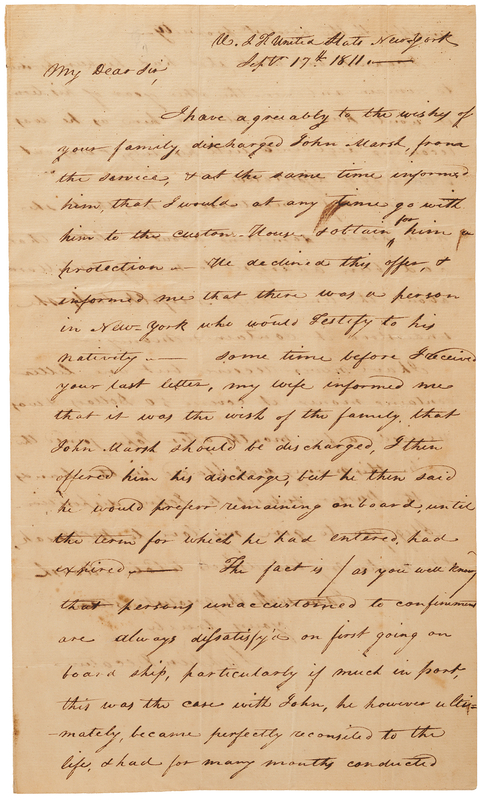 U. S. F. United States New-York
Sept. 17th 1811.
My Dear Sir,
I have agreeably to the wishes of
your family discharged John Marsh, from
the service, & at the same time informed
him, that I would at any time go with
him to the custom-House & obtain for him a
protection — He declined this offer, &
informed me that there was a person
in New-York who would testify to his
nativity. — some time before I received
your last letter, my wife informed me
that it was the wish of the family that
John Marsh should be discharged, I then
offered him his discharge, but he then said
he would preferr remaining on board, until
the term for which he had entered, had
expired — The fact is / as you well know
that persons unaccustomed to confinement
are always dissatisfy'd on first going on
board ship, particularly if much in port,
this was the case with John, he however ulti-
-mately, became perfectly reconsiled to the
life, & had for many months conducted